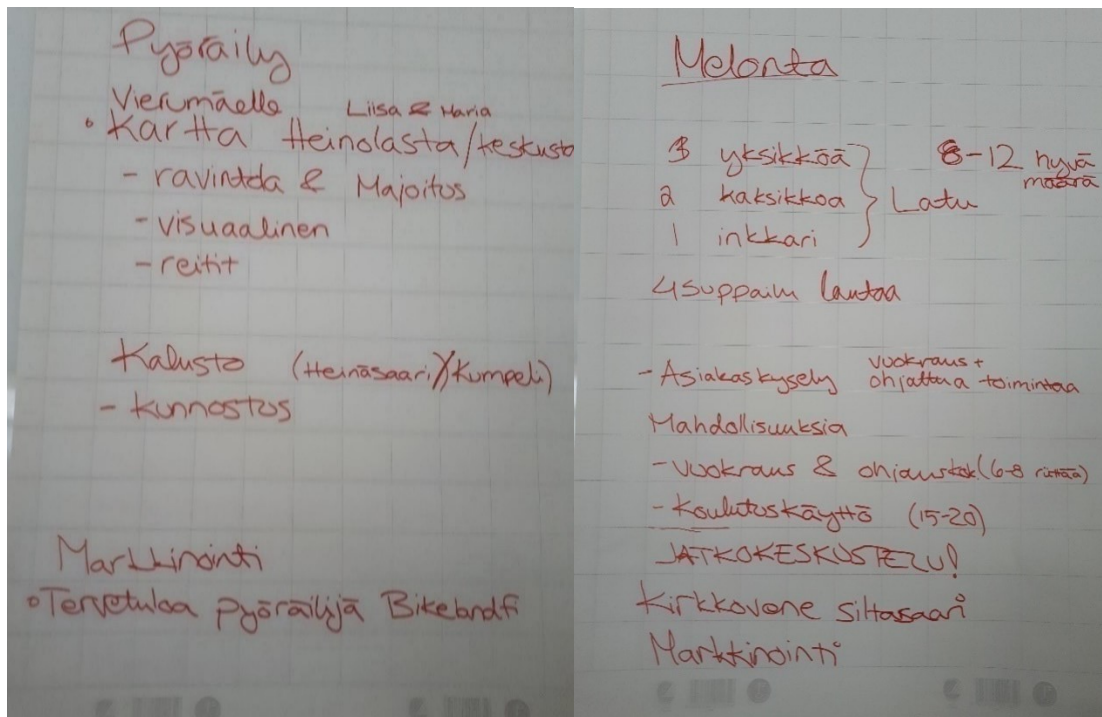 Pyöräily
Vierumäelle Liisa & Maria
• Kartta Heinolasta/keskusta
- ravintola & Majoitus
- visuaalinen
- reitit
Kalusto (Heinäsaari)(Kumpeli)
- kunnostus
Markkinointi
• Tervetuloa pyöräilijä Bikeland.fi
Melonta
3 yksikköä
8-12 hyvä
määrä
2 kaksikkoa
Latu
1 inkkari
4 suppailu lautaa
- Asiakaskysely vuokraus +
ohjattua toimintaa
Mahdollisuuksia
- vuokraus & ohjaustok (6-8 riittää)
- Koulutuskäyttö (15-20)
JATKOKESKUSTELU!
Kirkkovene Siltasaari
Markkinointi